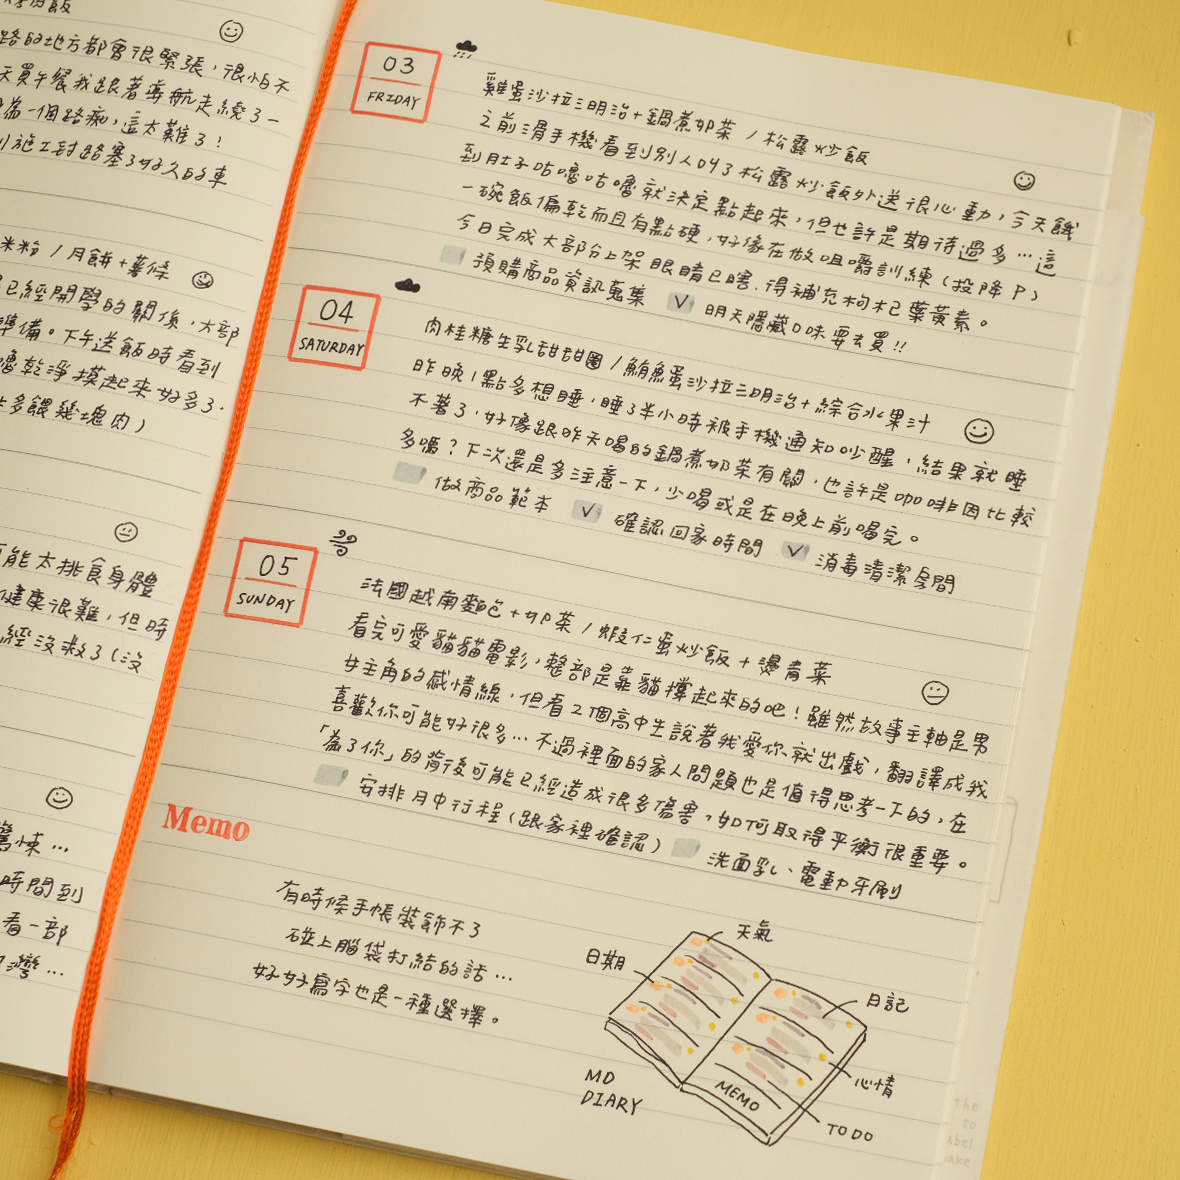 路的地方都會很緊張，很怕不
天買午餐我跟著導航走繞了一
為一個路痴，這太難了！
施工封路塞了好久的車
米粉 / 月餅+薯條
已經開學的關係，大部
準備。下午送飯時看到
嚕乾淨摸起來好多了.
多餵幾塊肉）
可能太挑食身體
健康很難，但時
經沒救了（沒
驚悚…
時間到
看一部
03
FRIDAY
雞蛋沙拉三明治+鍋煮奶茶 / 松露炒飯
之前滑手機看到別人叫了松露炒飯外送很心動，今天餓
到肚子咕嚕咕嚕就決定點起來，但也許是期待過多…這
一碗飯偏乾而且有點硬，好像在做咀嚼訓練（投降P）
今日完成大部分上架眼睛已瞎，得補充枸杞葉黃素。
預購商品資訊蒐集 ✓ 明天隱藏口味要去買!!
04
SATURDAY
肉桂糖生乳甜甜圈 / 鮪魚蛋沙拉三明治+綜合水果汁
昨晚1點多想睡，睡了半小時被手機通知吵醒，結果就睡
不著了，好像跟昨天喝的鍋煮奶茶有關，也許是咖啡因比較
多嗎？下次還是多注意一下，少喝或是在晚上前喝完。
做商品範本 ✓ 確認回家時間 ✓ 消毒清潔房間
05
SUNDAY
法國越南麵包+奶茶 / 蝦仁蛋炒飯+燙青菜
看完可愛貓貓電影，整部是靠貓撐起來的吧！雖然故事主軸是男
女主角的感情線，但看2個高中生說著我愛你就出戲，翻譯成我
喜歡你可能好很多…不過裡面的家人問題也是值得思考一下的，在
「為了你」的背後可能已經造成很多傷害，如何取得平衡很重要。
安排月中行程（跟家裡確認） 洗面乳、電動牙刷
Memo
有時候手帳裝飾不了
碰上腦袋打結的話…
好好寫字也是一種選擇。
天氣
日期
日記
心情
MEMO
TO DO
MD
DIARY